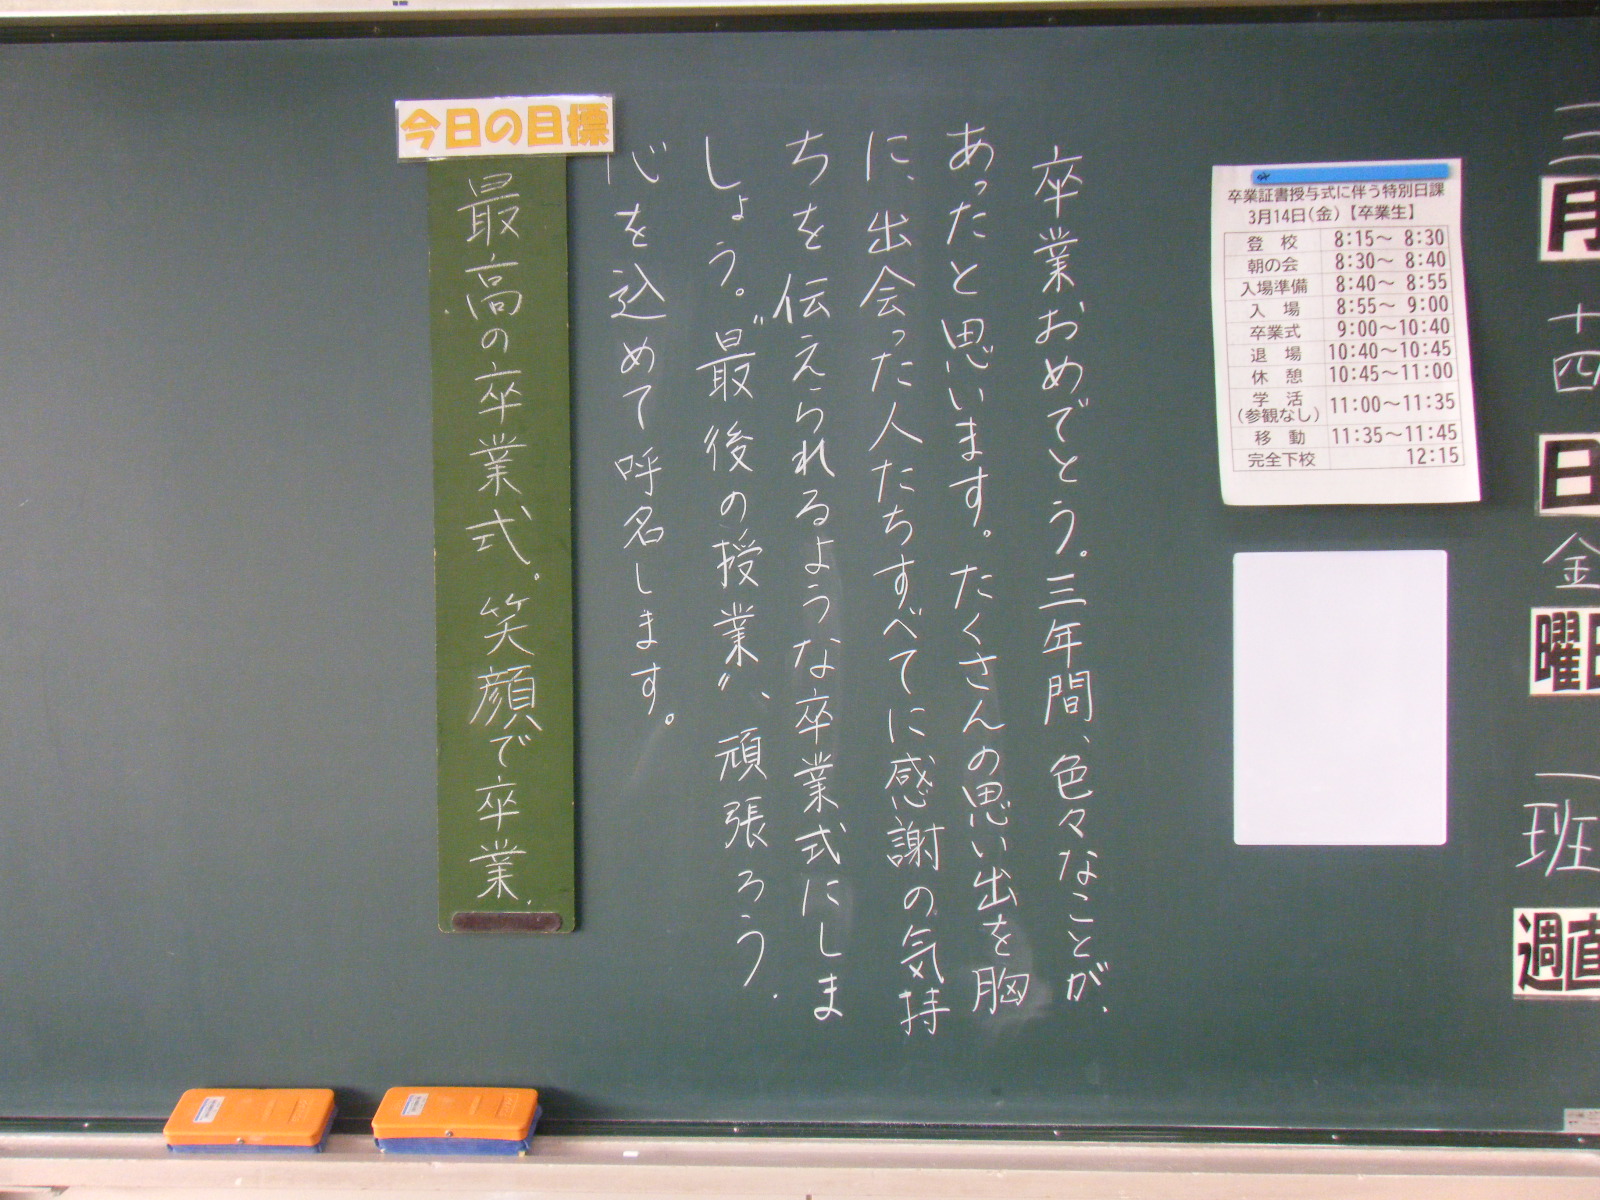 三
月
十四
日
金
曜日
一班
週直
卒業証書授与式に伴う特別日課
3月14日(金)【卒業生】
登 校 8:15～ 8:30
朝の会 8:30～ 8:40
入場準備 8:40～ 8:55
入 場 8:55～ 9:00
卒業式 9:00～10:40
退 場 10:40～10:45
休 憩 10:45～11:00
学 活
(参観なし) 11:00～11:35
移 動 11:35～11:45
完全下校 12:15
卒業おめでとう。三年間、色々なことが、
あったと思います。たくさんの思い出を胸
に、出会った人たちすべてに感謝の気持
ちを伝えられるような卒業式にしま
しょう。〝最後の授業〟、頑張ろう.
心を込めて呼名します。
今日の目標
最高の卒業式。笑顔で卒業.